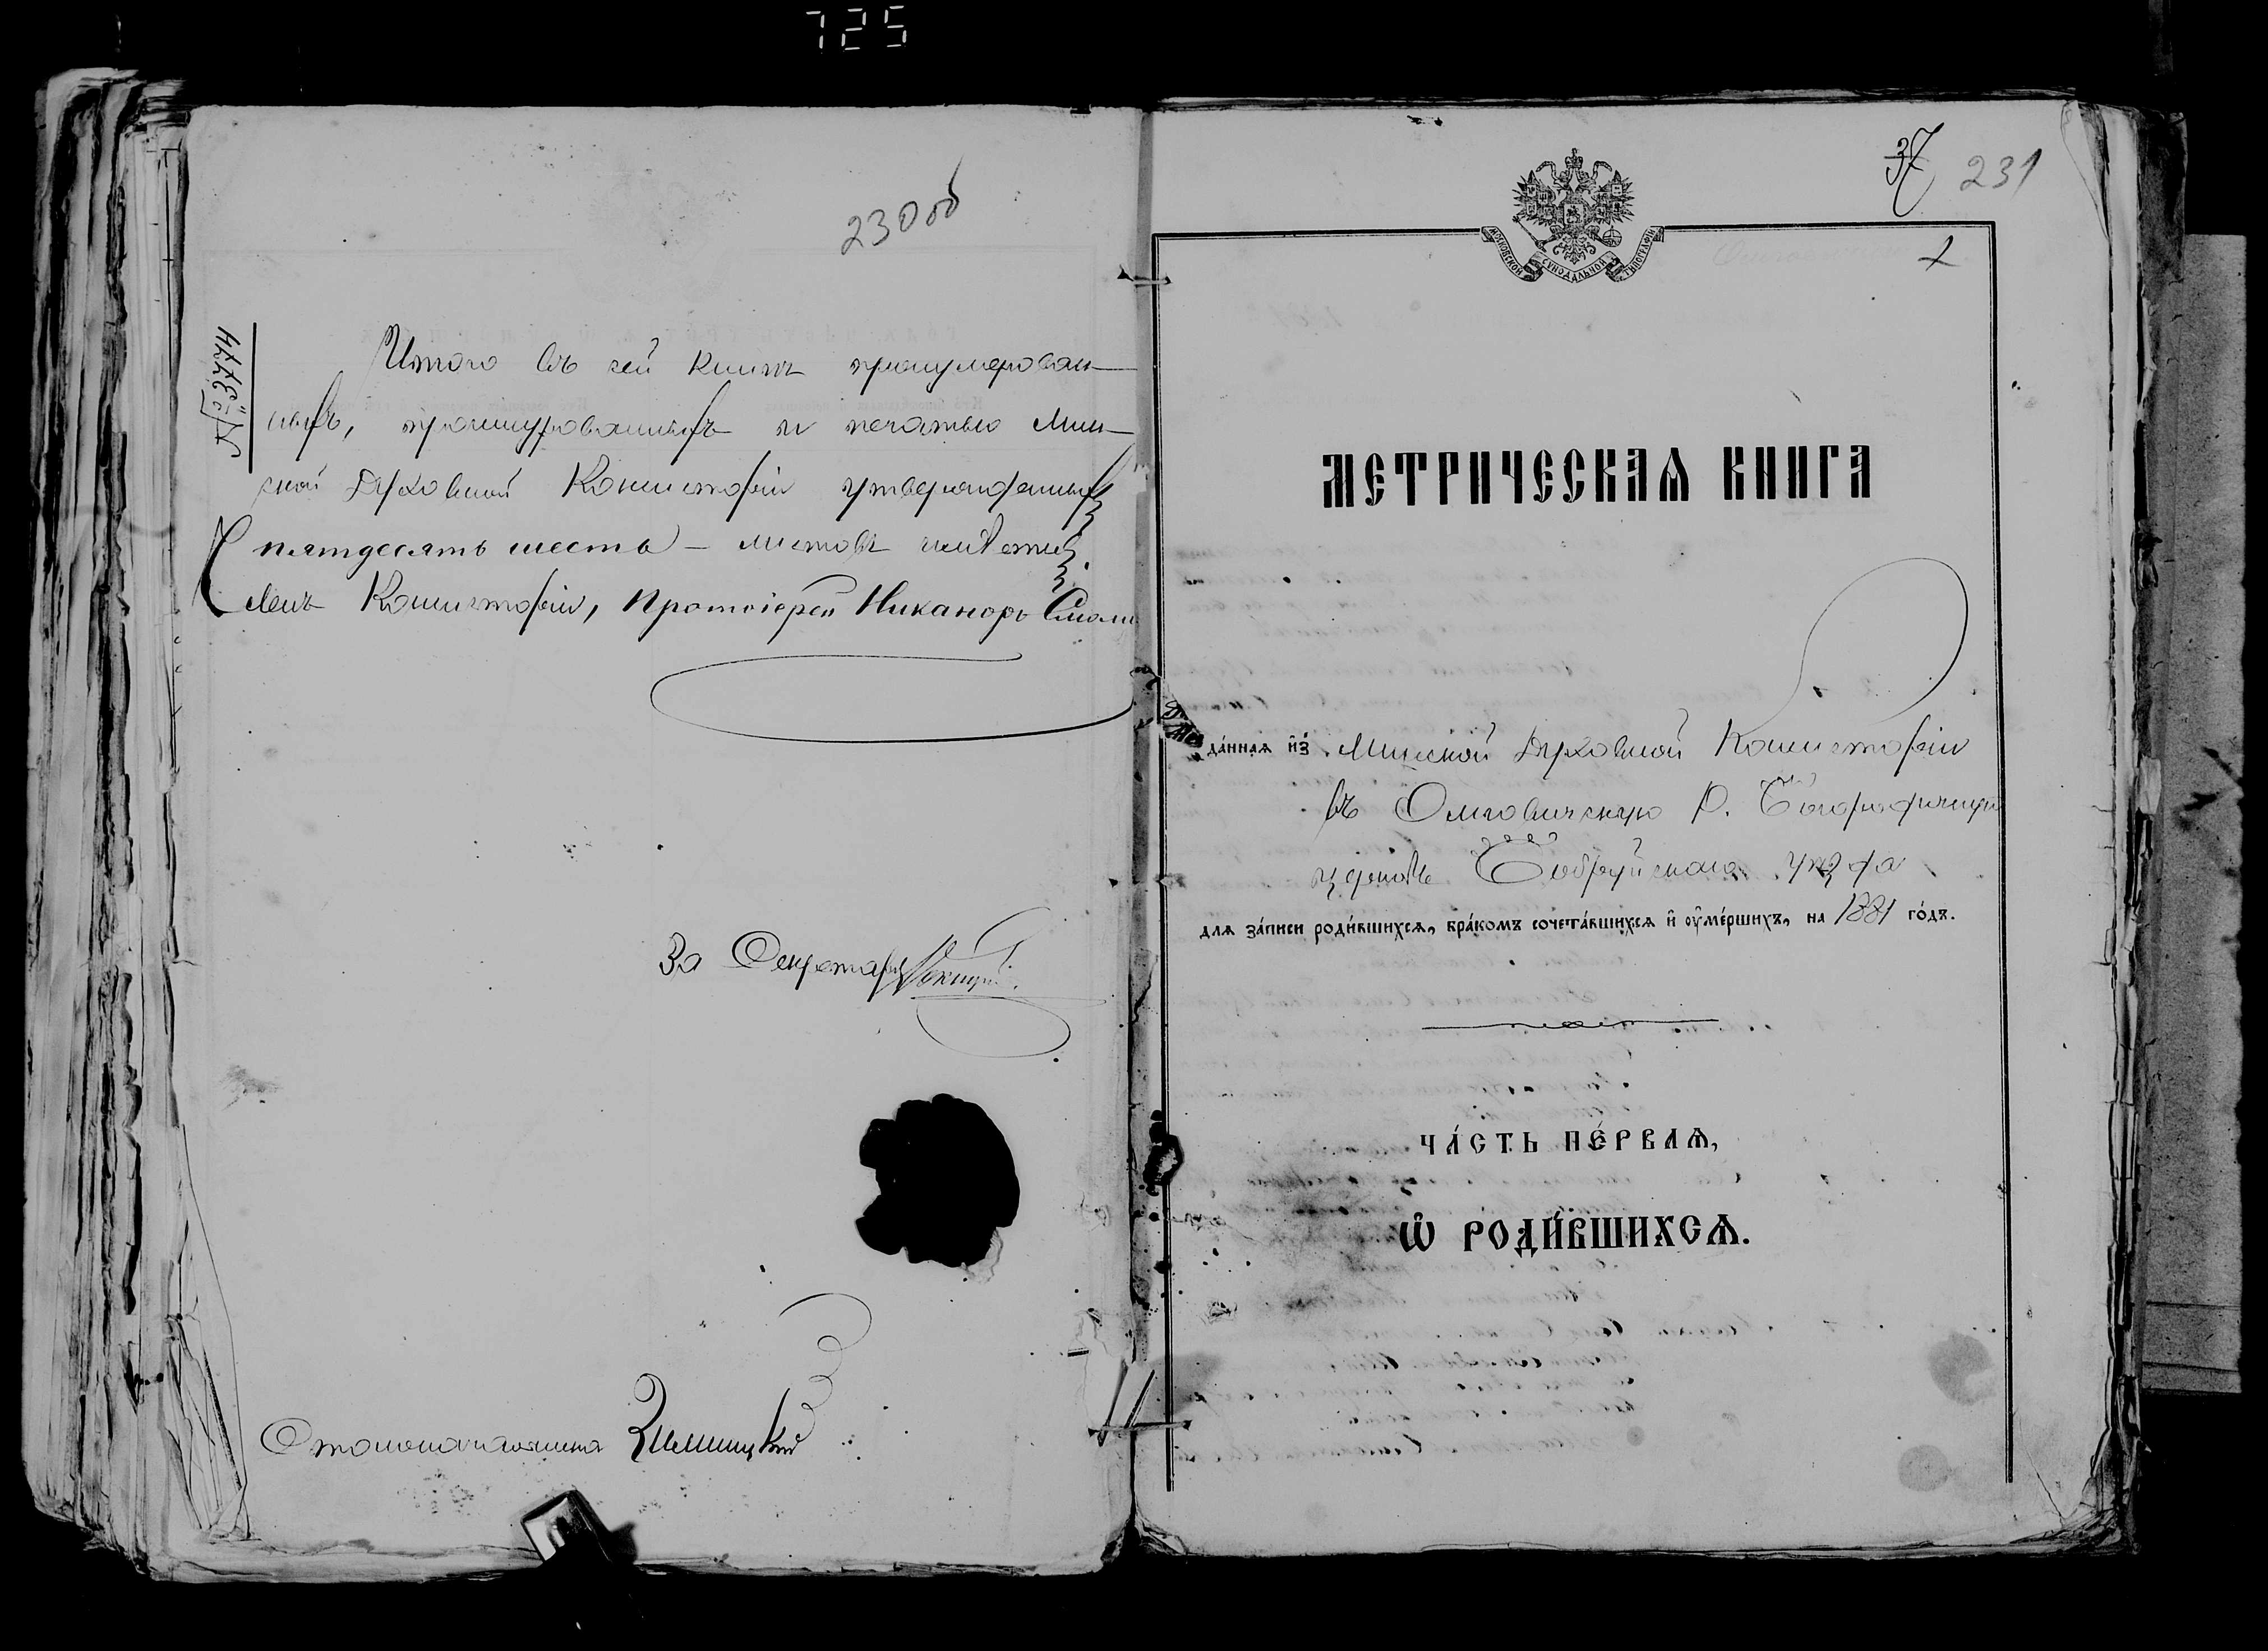 725
230 об
№ 3774
Итого въ сей книгѣ пронумерован-
ныхъ, прошнурованныхъ и печатью Мин-
ской Духовной Консисторіи утвержденныхъ
пятдесятъ шесть – листовъ
Членъ Консисторіи, Протоіерей Никаноръ
За Секретаря
Столоначальника
37 231
МОСКОВСКОЙ СѴНОДАЛЬНОЙ ТѴПОГРАФІИ
1
МЕТРИЧЕСКАѦ КНИГА
да́ннаѧ и҆з̾ Минской Духовной Консисторіи
въ Омговичскую Р. Богородичную
церковь Бобруйскаго уѣзда
длѧ за́писи роди́вшихсѧ, бра́комъ сочета́вшихсѧ и҆ оу҆ме́ршихъ, на 1881 го́дъ.
ЧА́СТЬ ПЕ́РВАѦ,
Ѽ РОДИ́ВШИХСѦ.